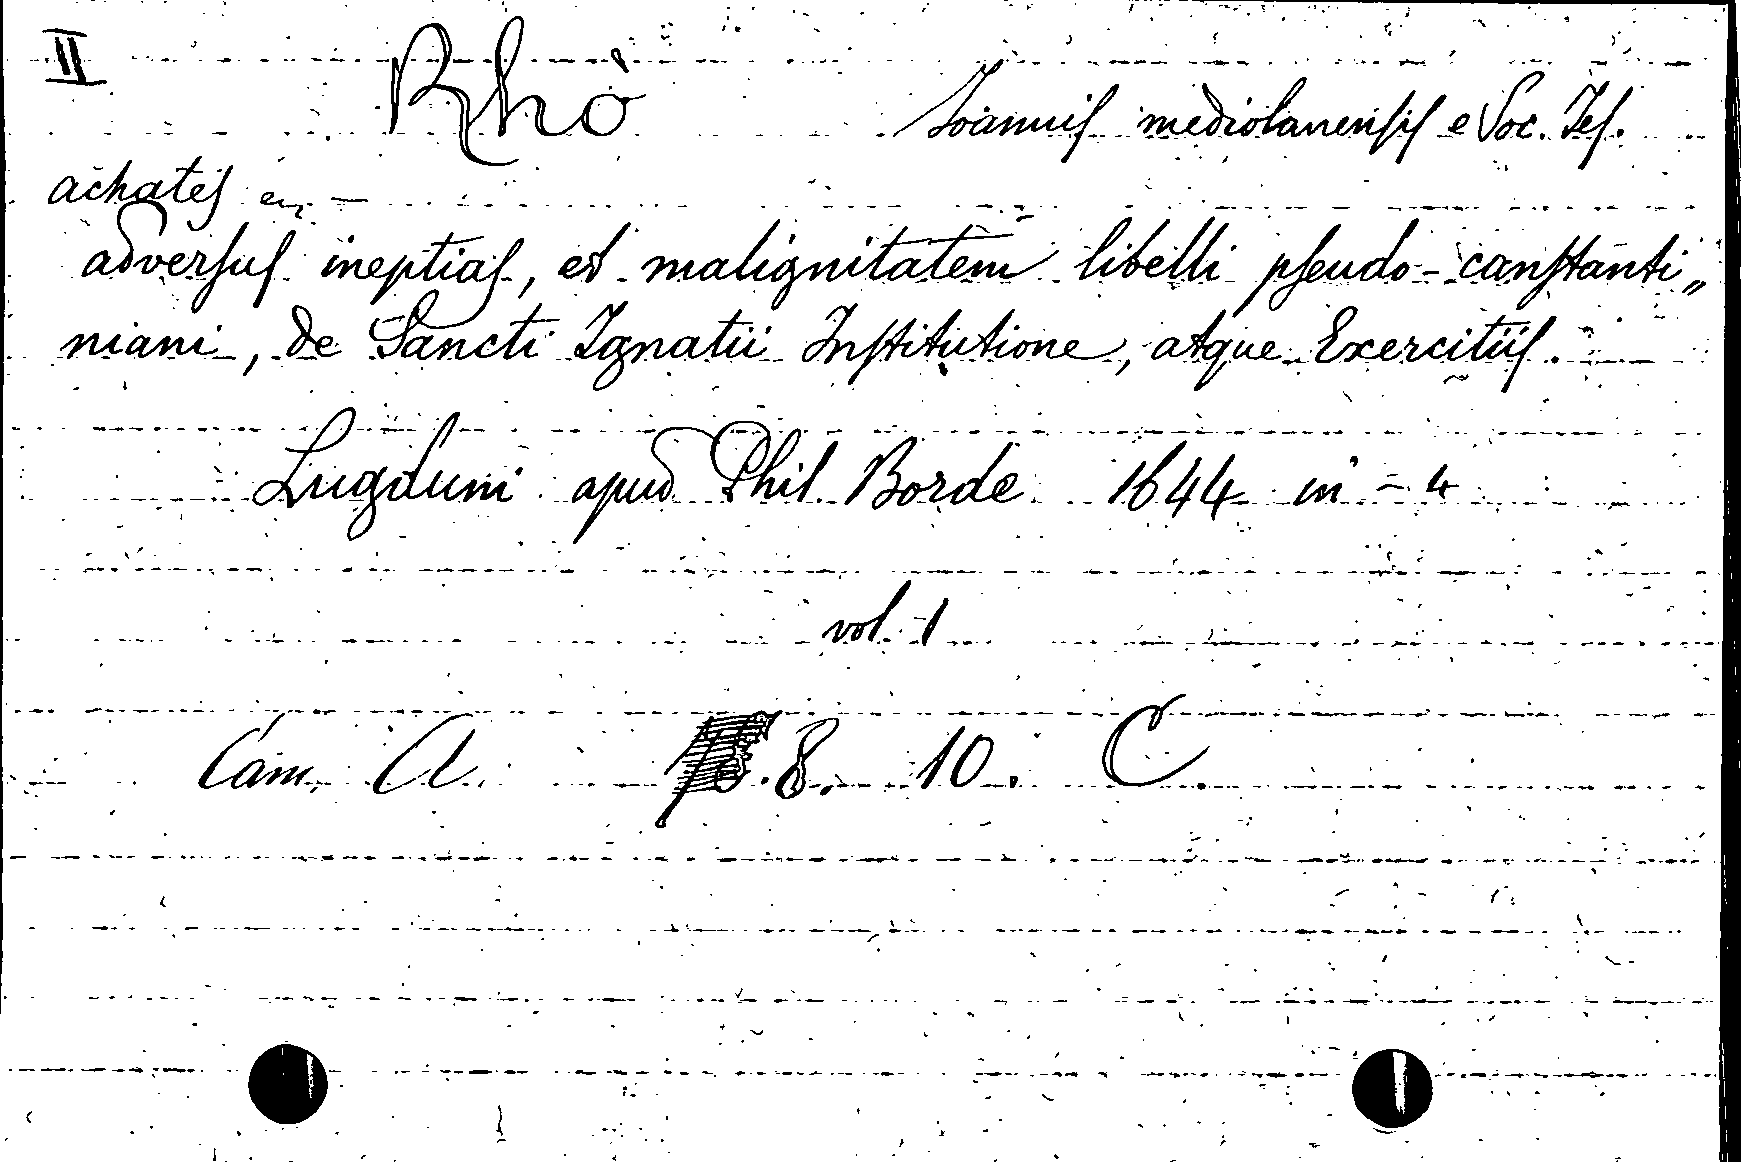 II Rhò Ioannis mediolanensis e Soc. Jes.
achates
adversus ineptias, et malignitatem libelli pseudo-canstanti„
niani, de Sancti Ignatii Institutione, atque Exercitiis.
Lugduni apud Phil. Borde 1644 in-4
vol. 1
Cam. A. 8. 10. C.